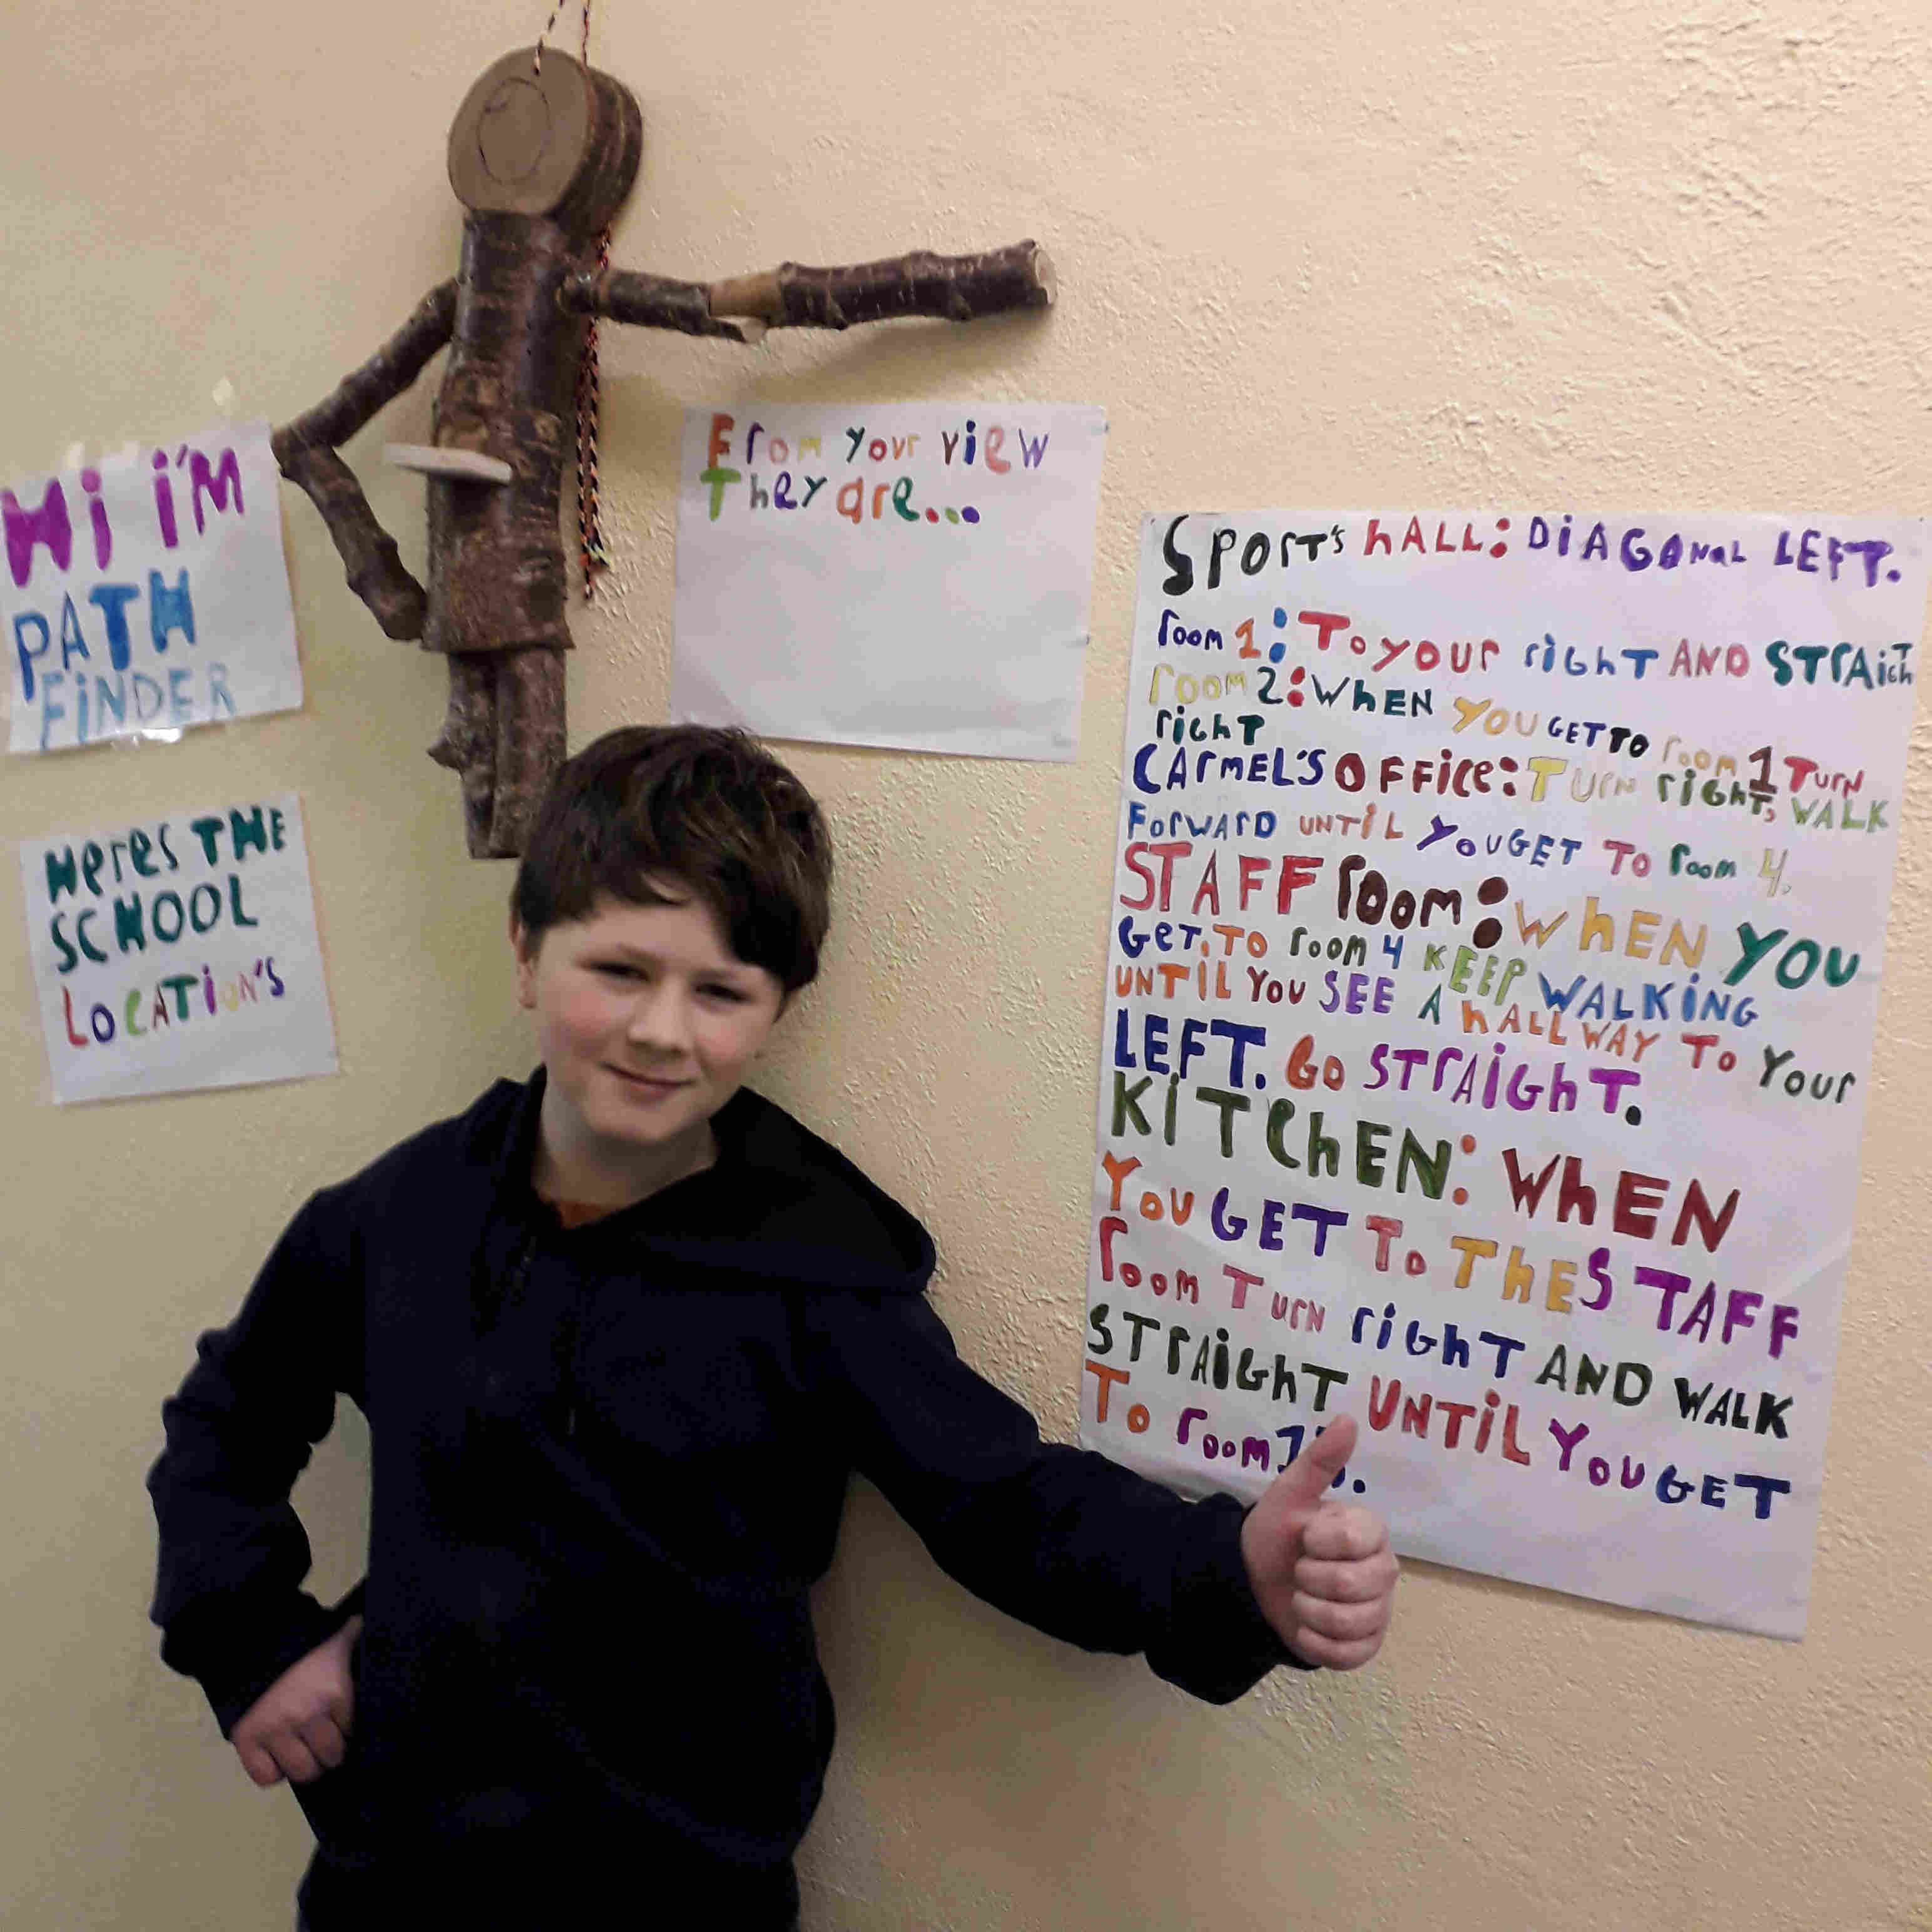 Hi i'M
PATH
FiNDER
HereS THE
SCHOOL
LOCATiON'S
From your view
They are...
SPOrT's hALL: DiAGONaL LEFT.
room 1: To your right AND STrAighT
room 2: WhEN YOU GET TO room 1 Turn
right
CArmEL'S OFFice: Turn right, WALK
ForwArD UNTiL YOU GET TO room 4.
STAFF room: WhEN YOU
GeT. TO room 4 KEEP WALKiNG
UNTiL YOU SEE A hALLWAY TO Your
LEFT. GO STrAighT.
KiTChEN: WhEN
YOU GET To ThE STAFF
room Turn righT AND WALK
STrAighT UNTiL YOU GET
To room